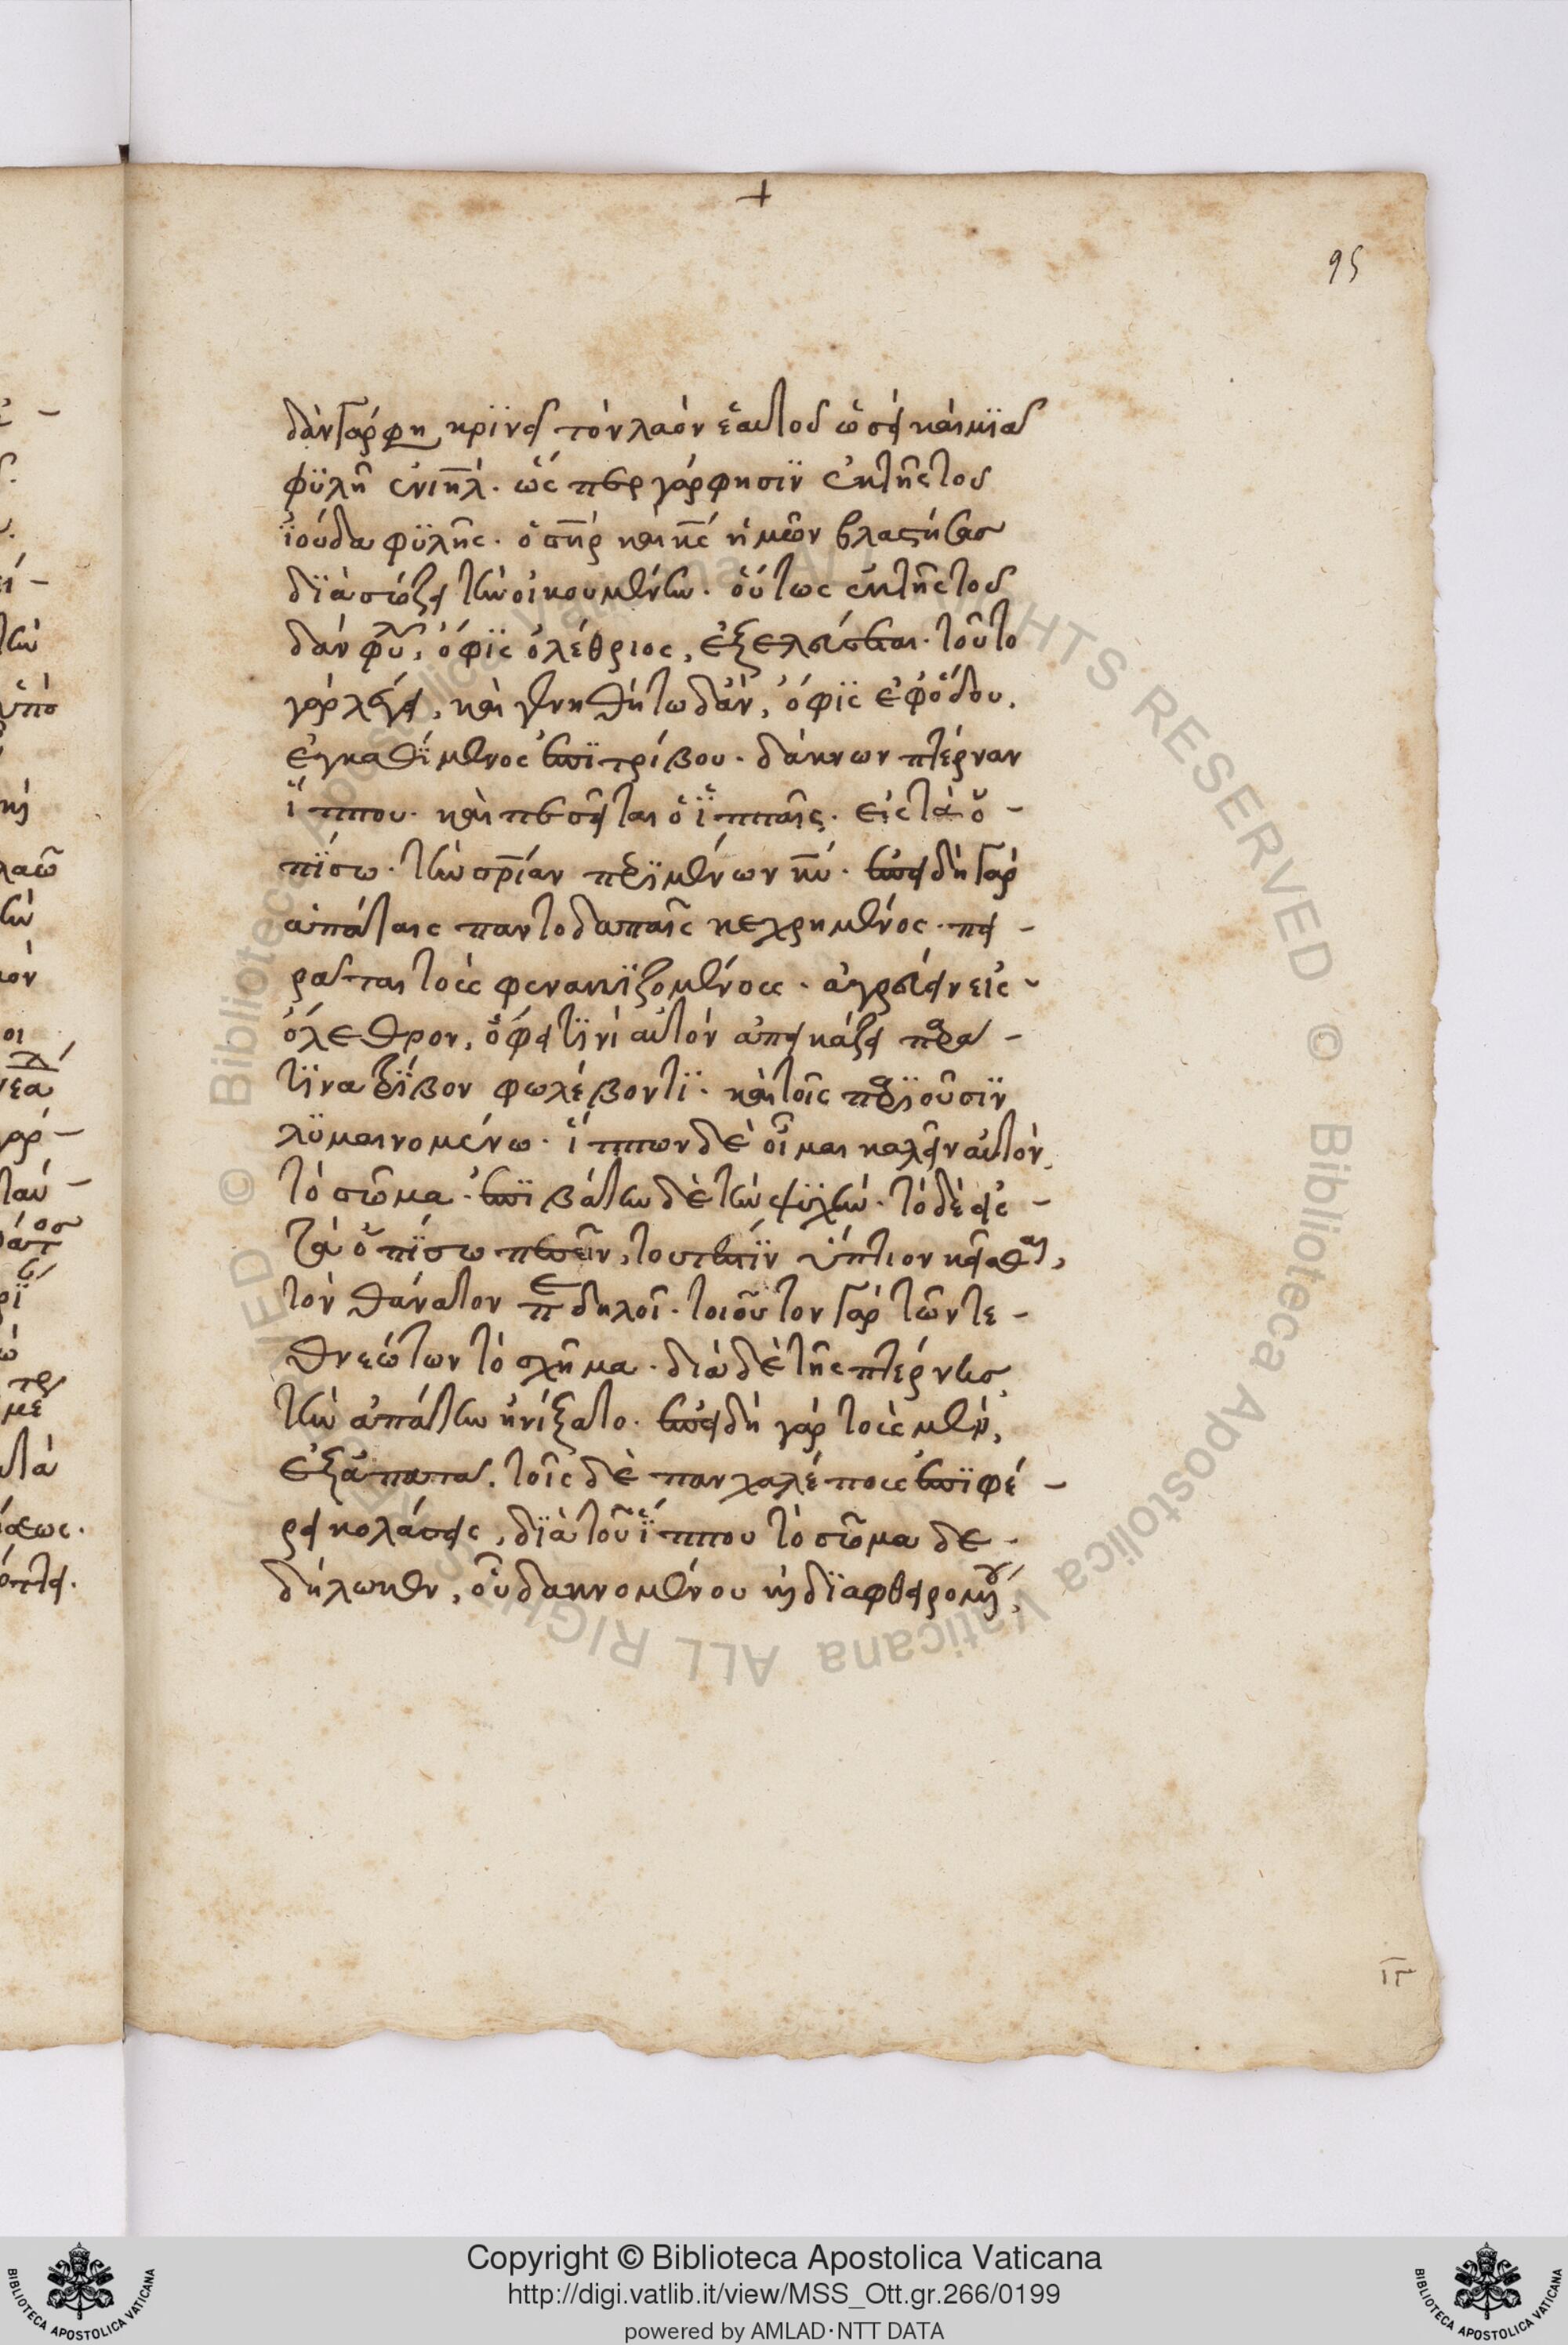 +
95
δὰν γάρ φη κρϊνεῖ τὸν λαὸν ἑαυτοῦ ὡσεὶ καὶ μϊᾶ
φϋλὴ ἐν ιηλ. ὥς περ γάρ φησϊν ἐκ τῆς τοῦ
ϊούδα φϋλῆς. ὁ σηρ καὶ κς ἡμῶν βλαστήσας
δϊασώζει τὴν οἰκουμένην. οὕτως ἐκ τῆς τοῦ
δάν φυλ, ὄφϊς ὀλέθριος, ἐξελεύσεται. τοῦτο
γὰρ λέγει, καὶ γενηθήτω δὰν, ὄφϊς ἐφόδου.
ἐγκαθϊμενος ἐπϊ τρίβου. δάκνων πτέρναν
ἵππου. καὶ πεσεῖται ὁ ϊππαῖς. εἰς τὰ ὀ -
πϊσω. τὴν σρϊαν περϊμένων κυ. ἐπειδὴ γὰρ
ἀπάταις παντοδαπαῖς κεχρημένος. πει -
ρᾶται τοὺς φενακϊζομένους. ἀγρεύειν εἰς -
ὄλεθρον, ὄφει τϊνὶ αὐτὸν ἀπεικάζει παρα -
τϊνα τρϊβον φωλεβοντϊ. καὶ τοῖς παρϊοῦσϊν
λϋμαινομένω. ἵππων δὲ οἶμαι καλεῖν αὐτὸν,
τὸ σῶμα. ἐπϊβάτην δὲ τὴν ψϋχήν. τὸ δὲ εἰς -
τὰ ὀπϊσω πεσεῖν, τουτέστϊν ὕπτιον κεῖσθαι,
τὸν θάνατον π δηλοῖ. τοιοῦτον γὰρ τῶν τε -
θνεώτων τὸ σχῆμα. διὰ δὲ τῆς πτέρνης,
τὴν ἀπάτην ἠνίξατο. ἐπειδὴ γὰρ τοὺς μὲν,
ἐξαπατᾶ. τοῖς δὲ παγχαλέπους ἐπϊφέ -
ρει κολάσεις, δϊὰ τοῦ ϊππου τὸ σῶμα δε -
δήλωκεν, οὗ δακνομένου κὴ δϊαφθειρομου,
ιγ
Copyright © Biblioteca Apostolica Vaticana
http://digi.vatlib.it/view/MSS_Ott.gr.266/0199
powered by AMLAD·NTT DATA